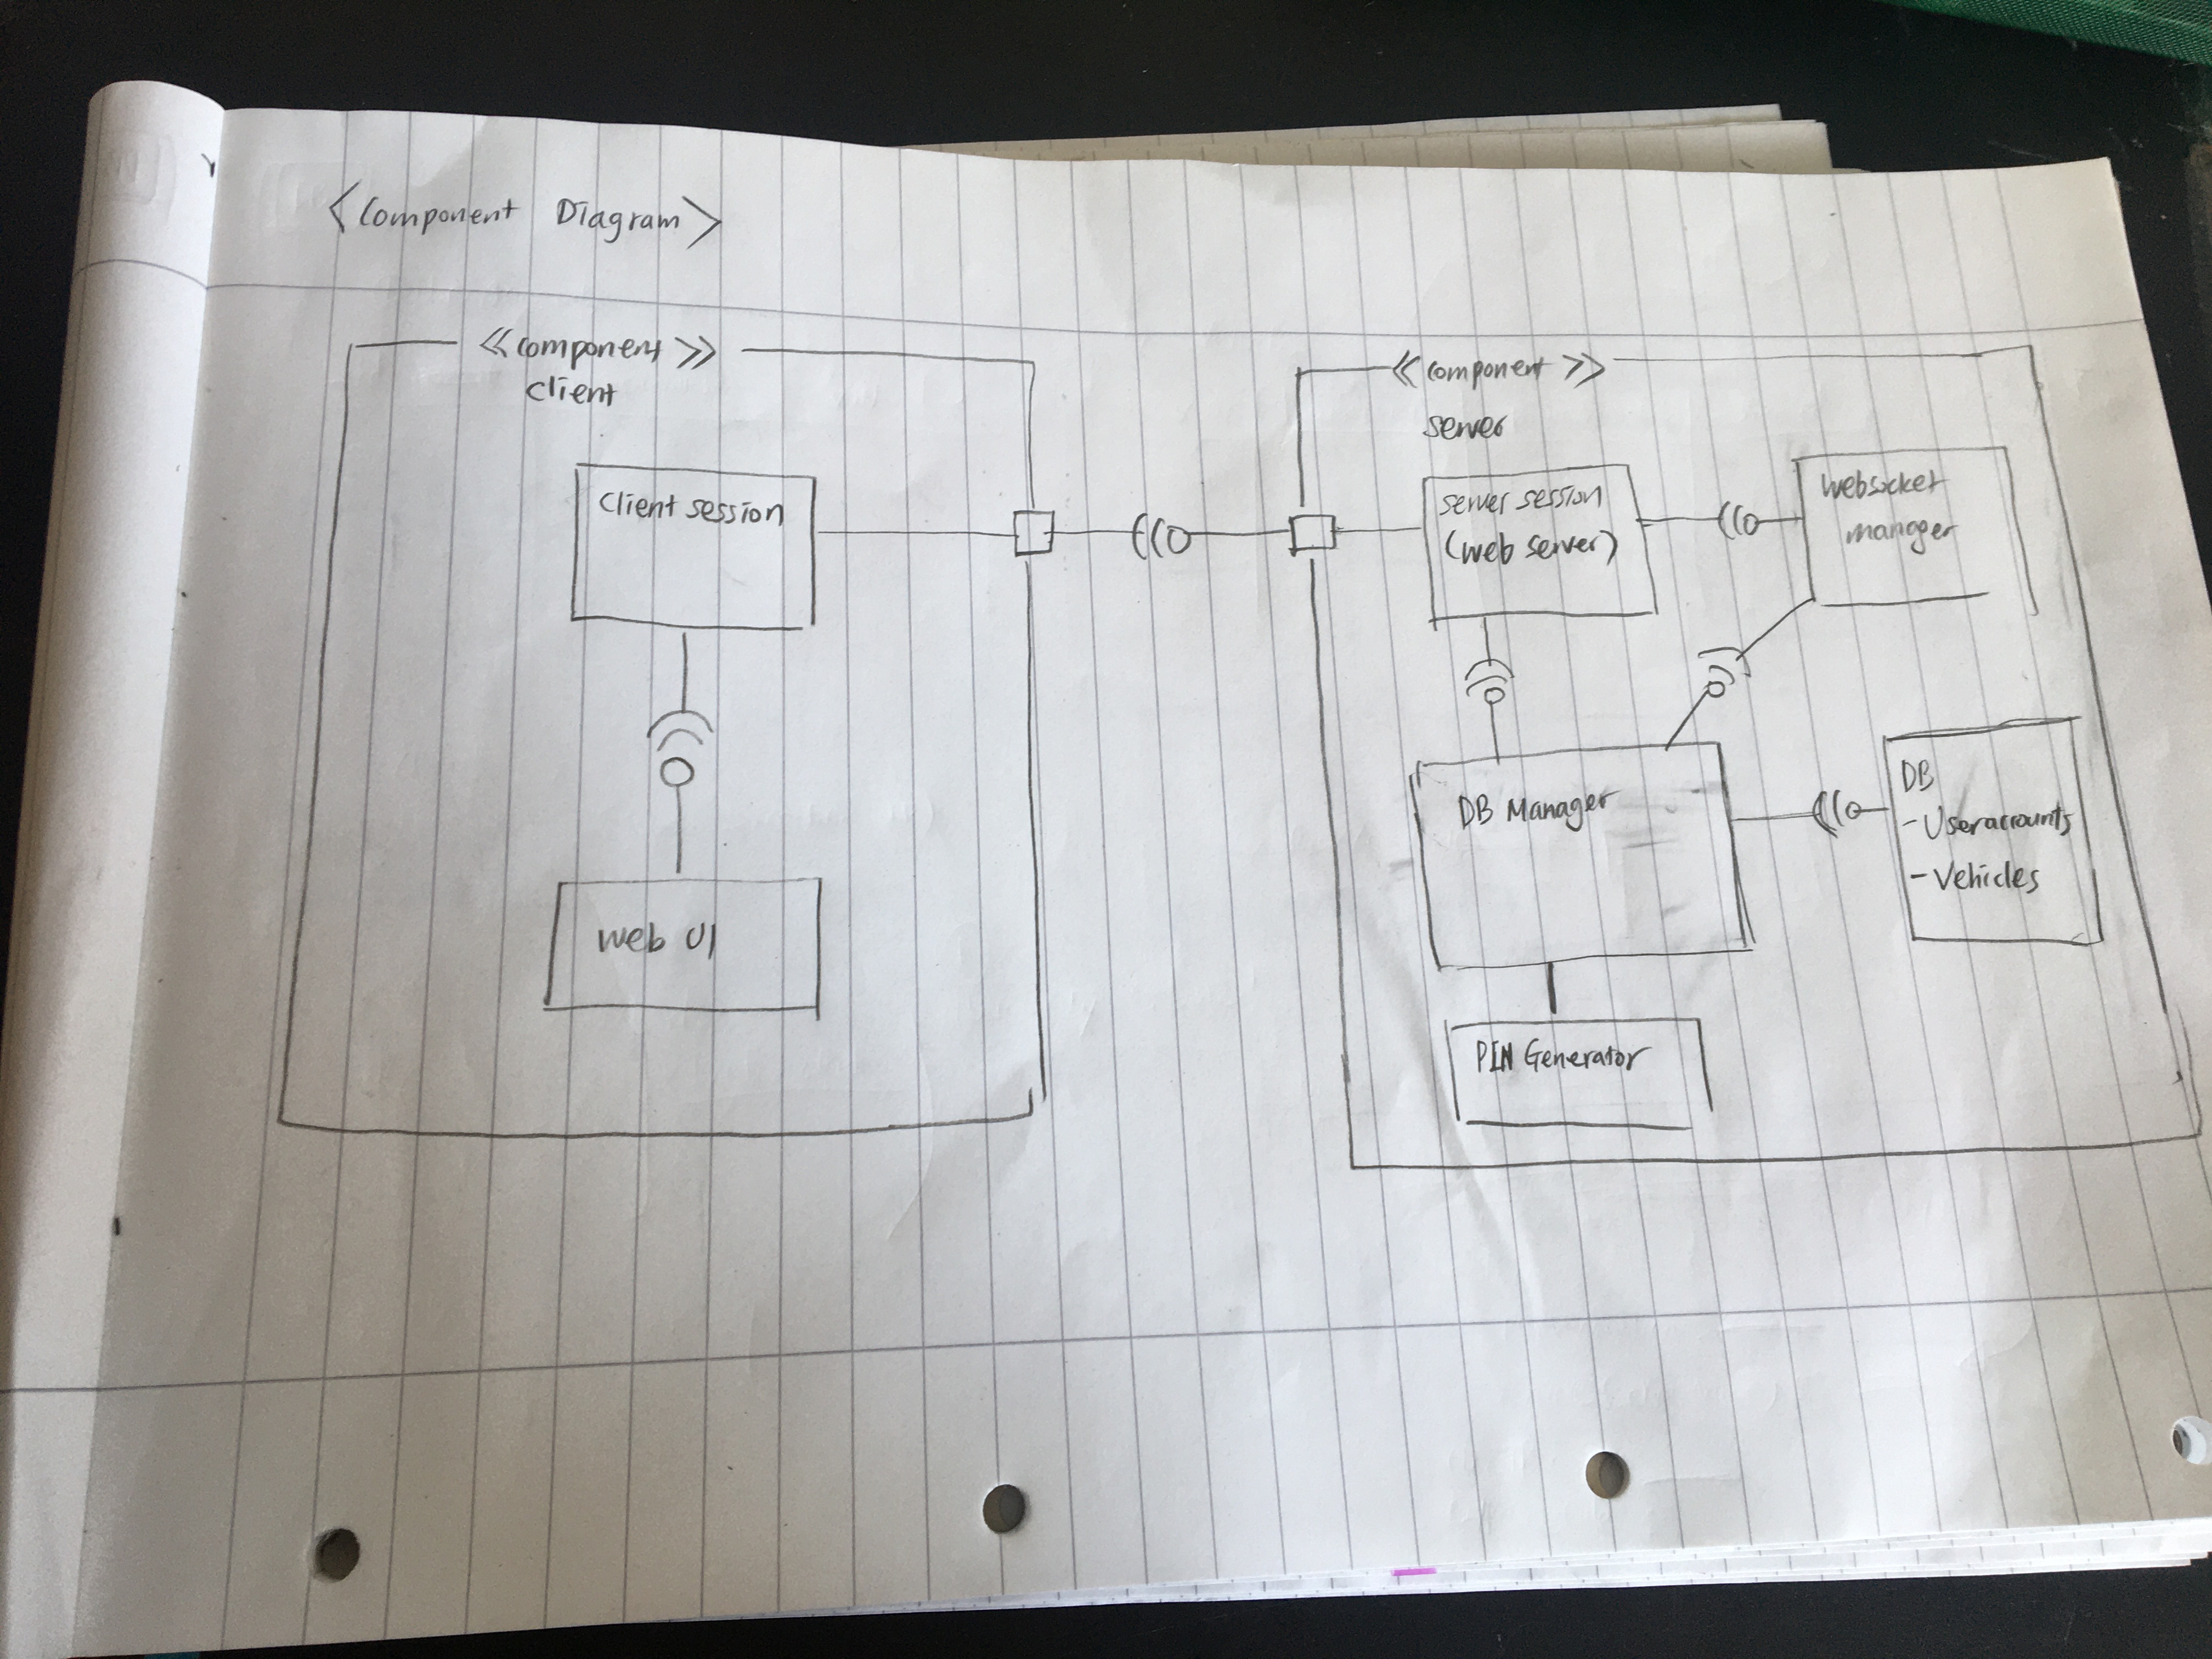 <Component Diagram>
<<component>>
client
Client session
web UI
<<component>>
server
server session
(web server)
websocket
manager
DB Manager
DB
-Useraccounts
-Vehicles
PIN Generator